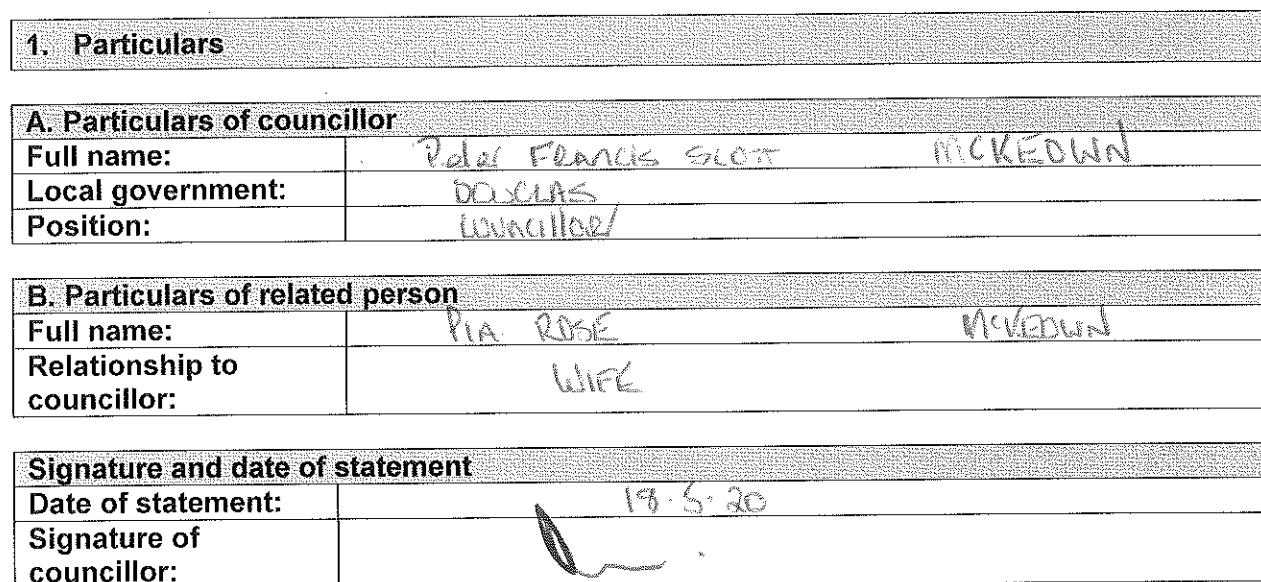 1. Particulars
A. Particulars of councillor
Full name: Peter FRANCIS SCOTT MCKEOWN
Local government: DOUGLAS
Position: COUNCILLOR
B. Particulars of related person
Full name: PIA ROSE MCKEOWN
Relationship to
councillor: WIFE
Signature and date of statement
Date of statement: 18.5.20
Signature of
councillor: